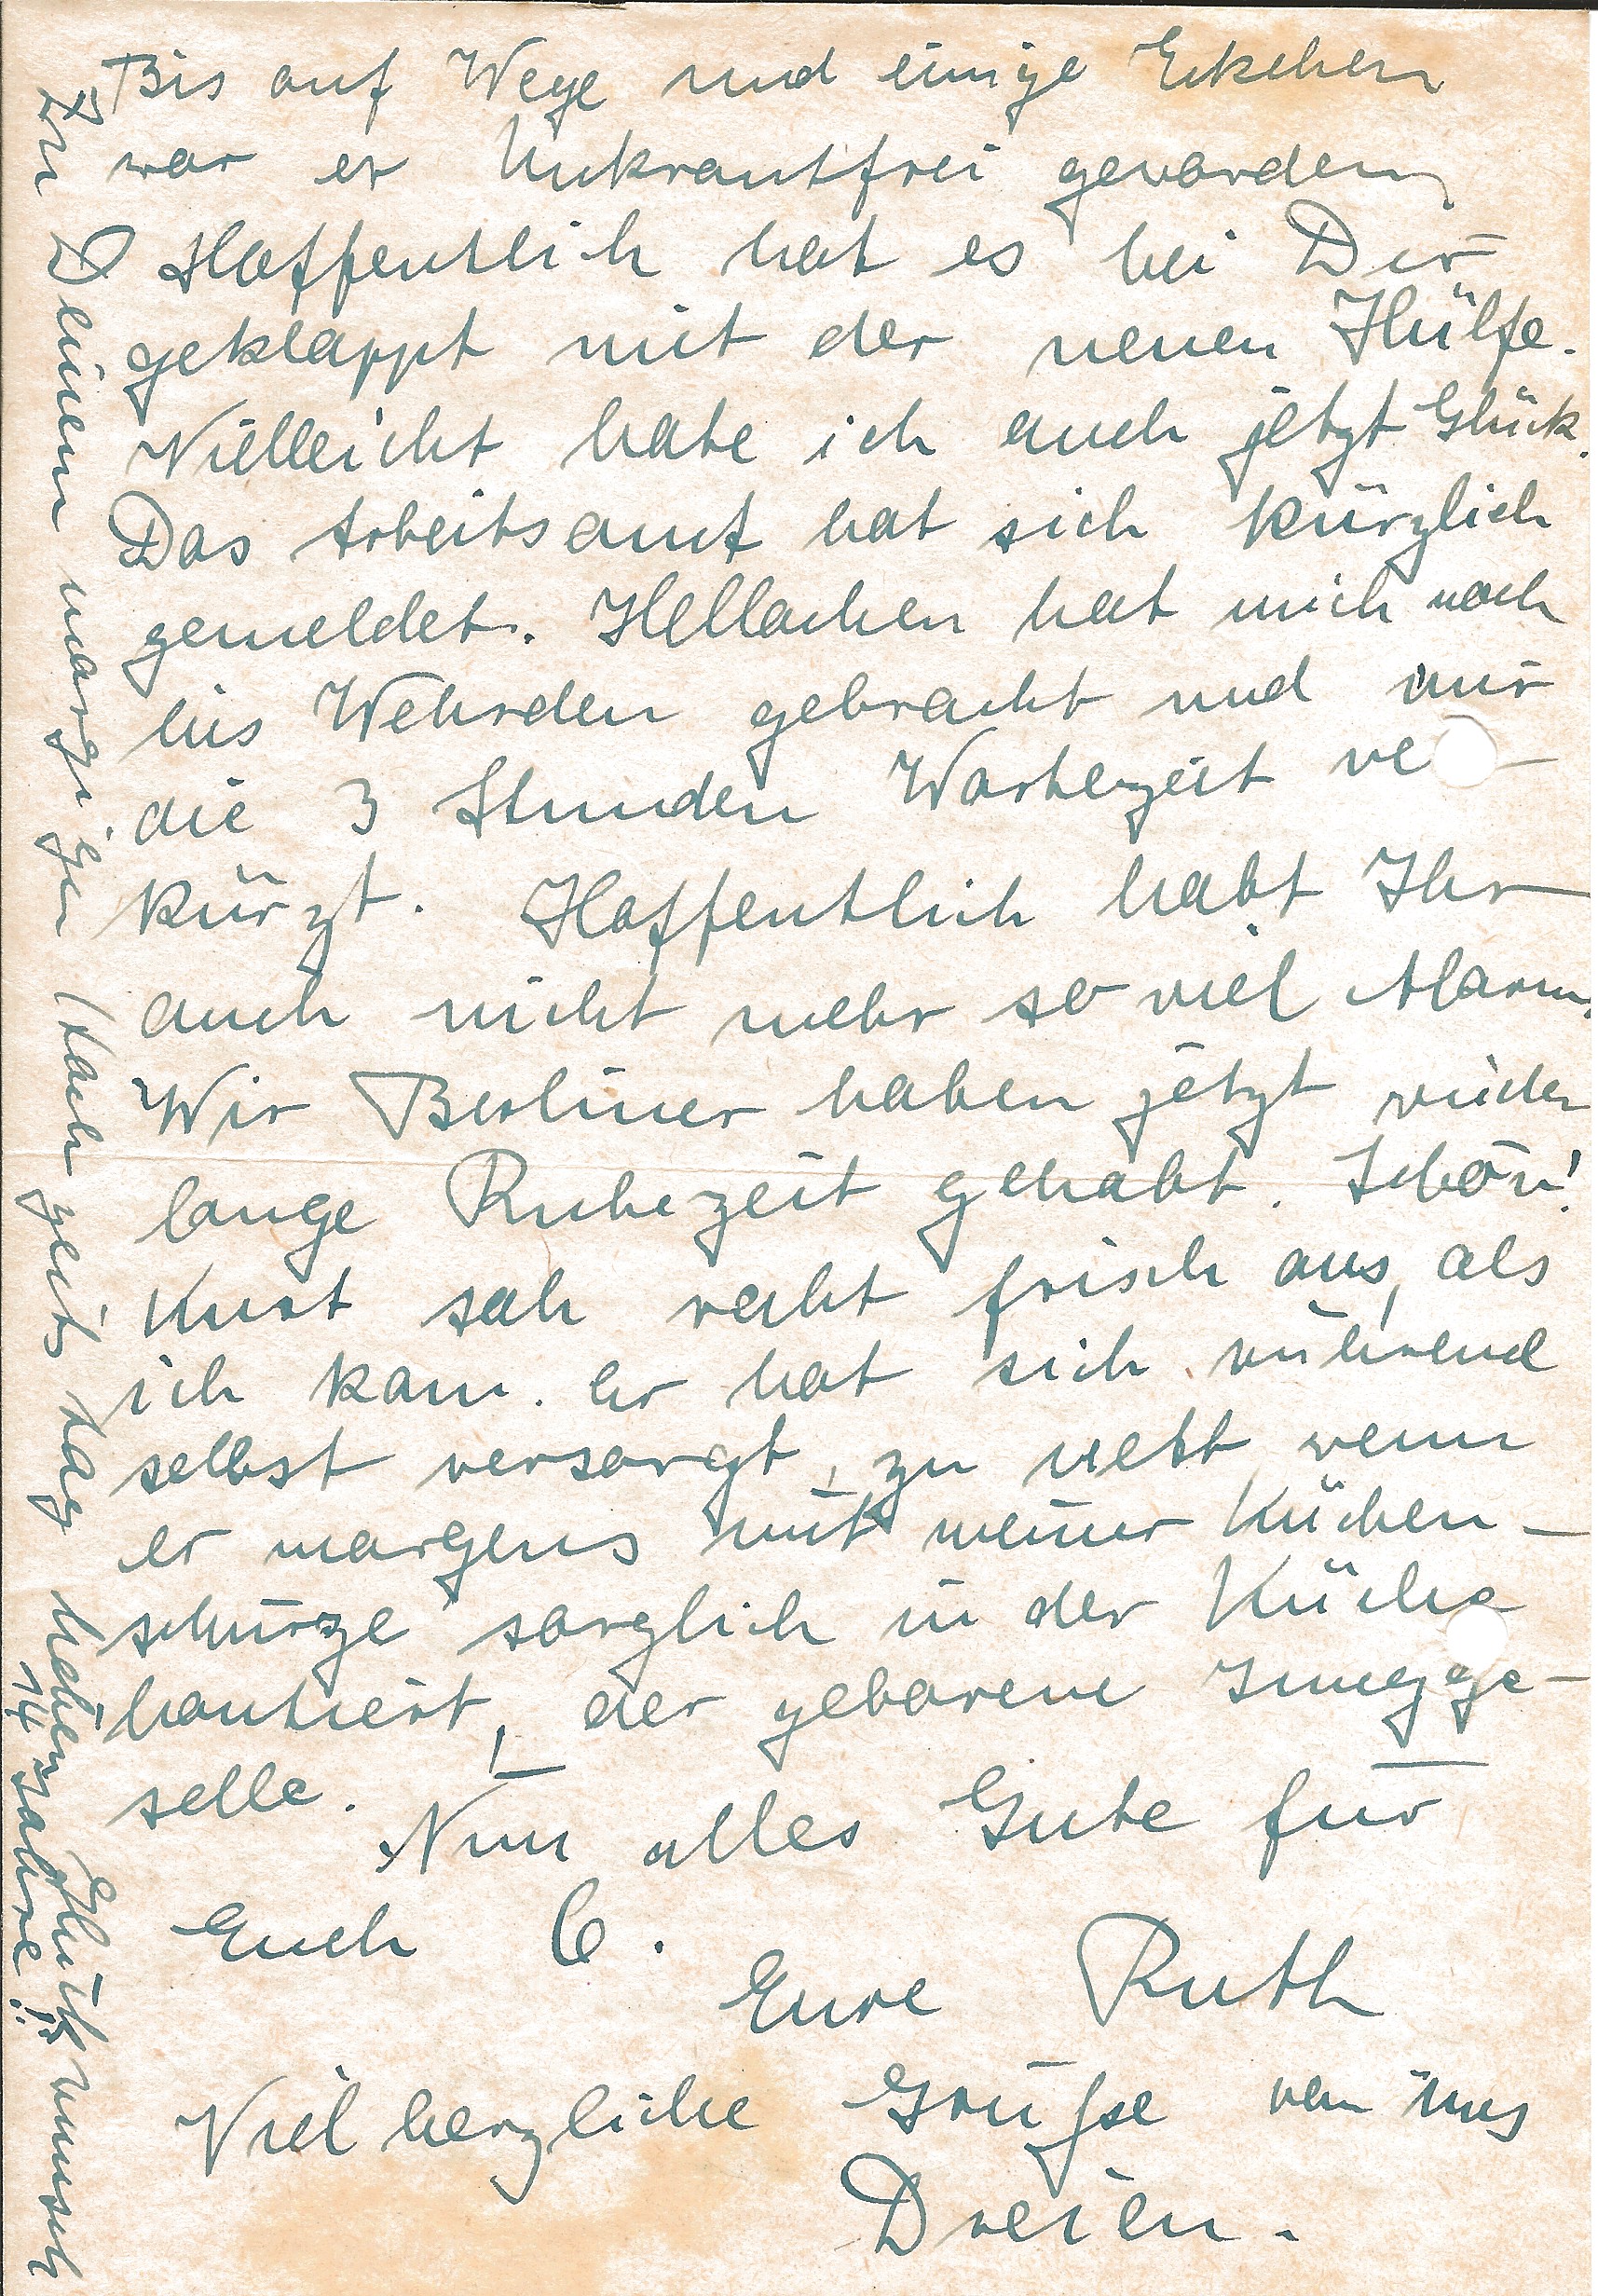 Bis auf Wege und einige Eckchen
war er Unkrautfrei geworden.
Hoffentlich hat es bei Dir
geklappt mit der neuen Hülfe.
Vielleicht habe ich auch jetzt Glück.
Das Arbeitsamt hat sich kürzlich
gemeldet. Hellachen hat mich noch
bis Wehrden gebracht und mir
die 3 Stunden Wartezeit ve-
kürzt. Hoffentlich habt Ihr
auch nicht mehr so viel Alarm.
Wir Berliner haben jetzt wieder
lange Ruhezeit gehabt. Schön!
Kurt sah recht frisch aus, als
ich kam. Er hat sich rührend
selbst versorgt, zu nett wenn
er morgens mit meiner Küchen-
schürze sorglich in der Küche
hantiert, der geborene Jungge-
selle!
Nun alles Gute für
Euch 6.
Eure Ruth
Viel herzliche Grüße von uns
Dreien.
Zu Deinem morgigen Hochzeitstag lieben Glückwunsch
14 Jahre!!